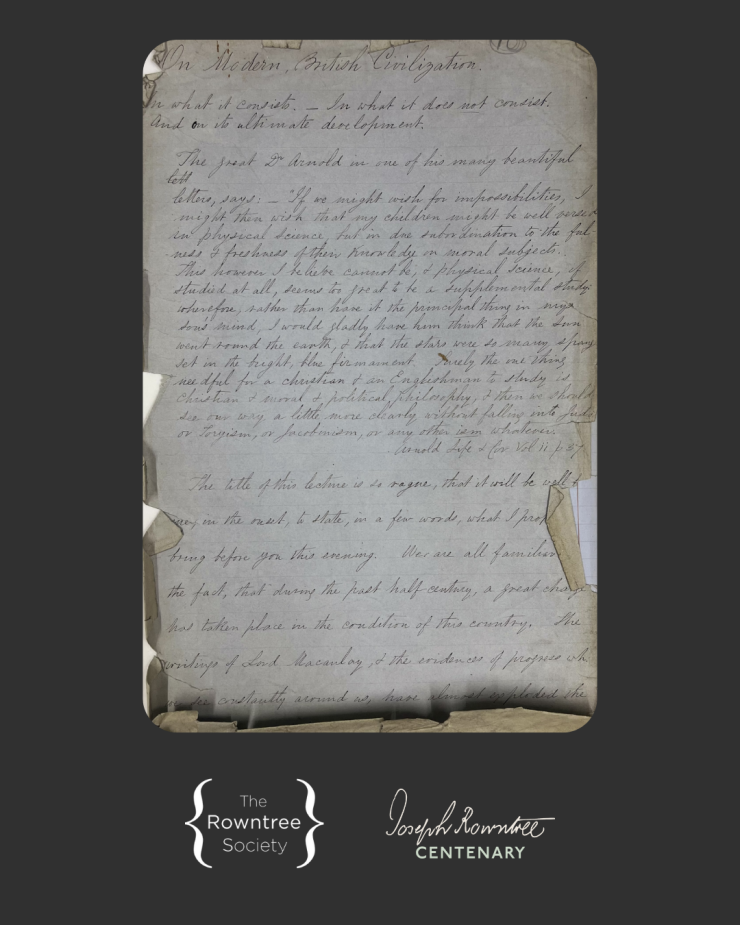 On Modern British Civilization.
In what it consists. — In what it does not consist.
And on its ultimate development.
The great Dr Arnold in one of his many beautiful
lett
letters, says: — "If we might wish for impossibilities, I
might then wish that my children might be well versed
in physical science, but in due subordination to the ful-
ness & freshness of their knowledge on moral subjects.
This however I believe cannot be, & physical science, if
studied at all, seems too great to be a supplemental study:
wherefore, rather than have it the principal thing in my
son's mind, I would gladly have him think that the Sun
went round the earth, & that the stars were so many
set in the bright, blue firmament. Surely the one thing
needful for a christian & an Englishman to study is
Christian & moral & political philosophy, & then we should
see our way a little more clearly without falling into
or Toryism, or Jacobinism, or any other ism whatever.
Arnold Life & Cor. Vol. II. p.
The title of this lecture is so vague, that it will be well
in the onset, to state, in a few words, what I
bring before you this evening. We are all familiar
the fact, that during the past half century, a great change
has taken place in the condition of this country. The
writings of Lord Macaulay, & the evidences of progress wh
we see constantly around us, have almost exploded the
The
Rowntree
Society
Joseph Rowntree
CENTENARY